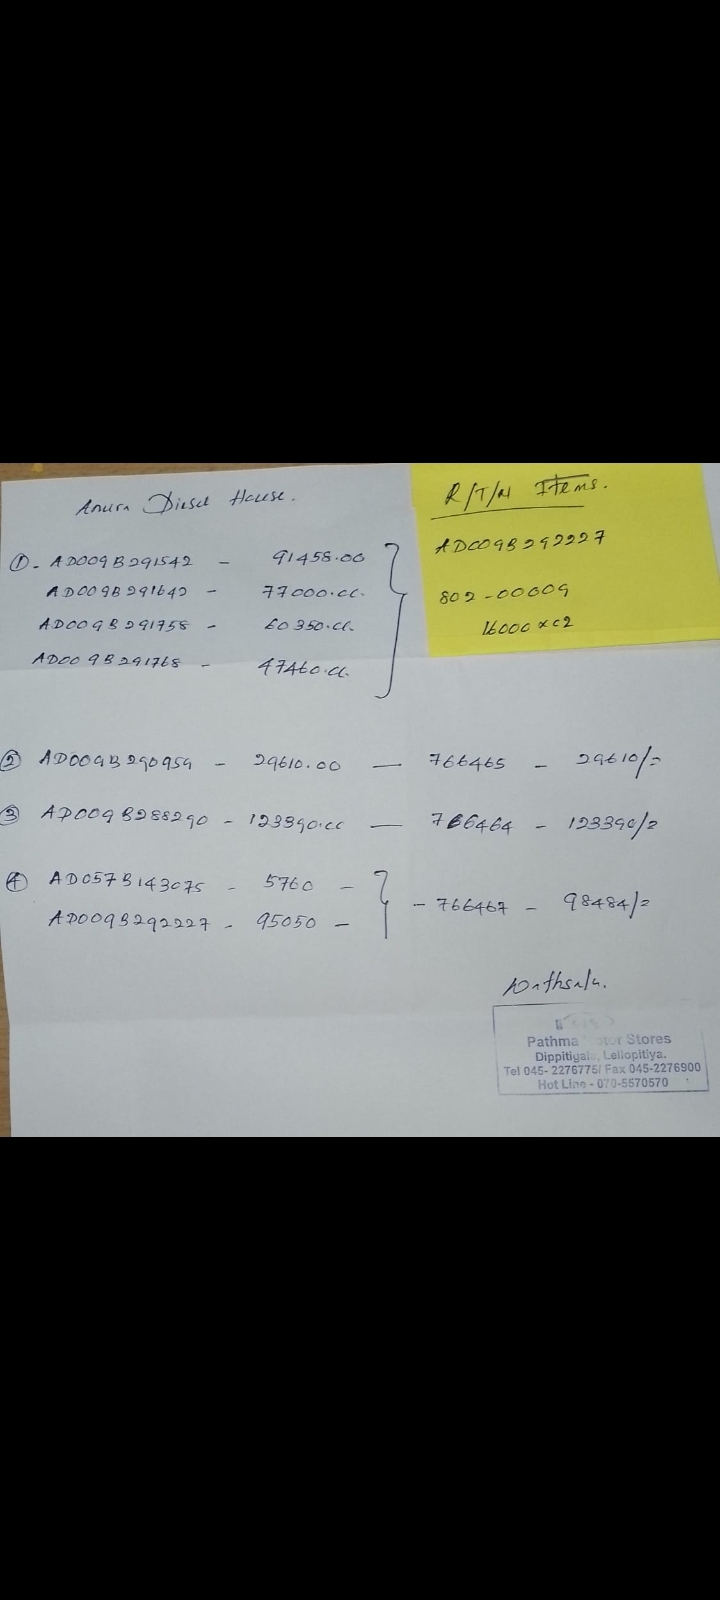 Anura Diesel House.
R/T/N Items.
AD009B292227
802-00009
16000 x 02
① - AD009B291542 - 91458.00
AD009B291642 - 77000.00
AD009B291758 - 60350.00
AD009B291768 - 47460.00
② AD009B290959 - 29610.00 — 766465 - 29610/=
③ AD009B288290 - 123390.00 — 766464 - 123390/=
④ AD057B143075 - 5760 -
AD009B292227 - 95050 -
- 766467 - 98484/=
Pathma Motor Stores
Dippitiyala, Lellopitiya.
Tel 045- 2276775/ Fax 045-2276900
Hot Line - 070-5570570